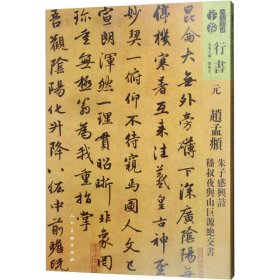 行書
元
趙孟頫
朱子感興詩
嵇叔夜與山巨源絕交書
崑崙大無外旁薄下深廣陰陽無
停機寒暑互來往羲皇古神聖
妙契一俯仰不待窺馬圖人文已
宣朗渾然一理貫昭晰非象罔
珍重無極翁為我重指掌
吾觀陰陽化升降八紘中前瞻既